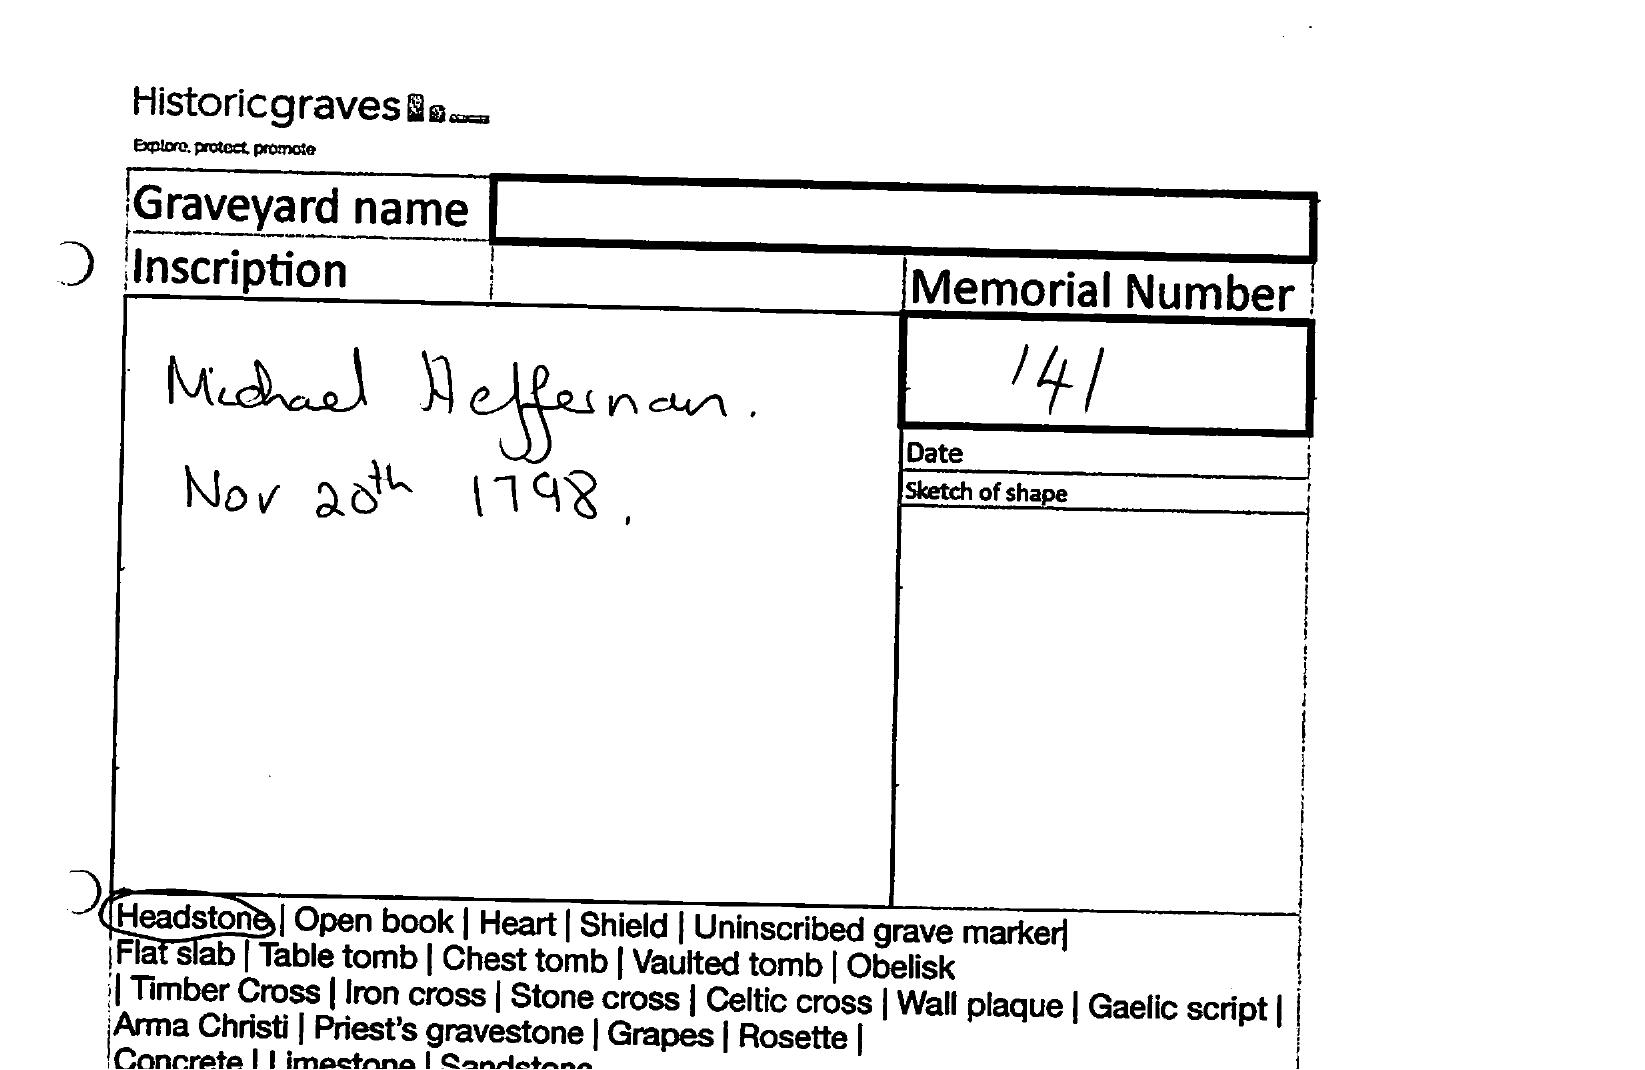 Historicgraves
Explore, protect, promote
Graveyard name
Inscription
Memorial Number
Michael Heffernan.
Nov 20th 1798.
141
Date
Sketch of shape
Headstone | Open book | Heart | Shield | Uninscribed grave marker|
Flat slab | Table tomb | Chest tomb | Vaulted tomb | Obelisk
| Timber Cross | Iron cross | Stone cross | Celtic cross | Wall plaque | Gaelic script |
Arma Christi | Priest's gravestone | Grapes | Rosette |
Concrete | Limestone | Sandstone